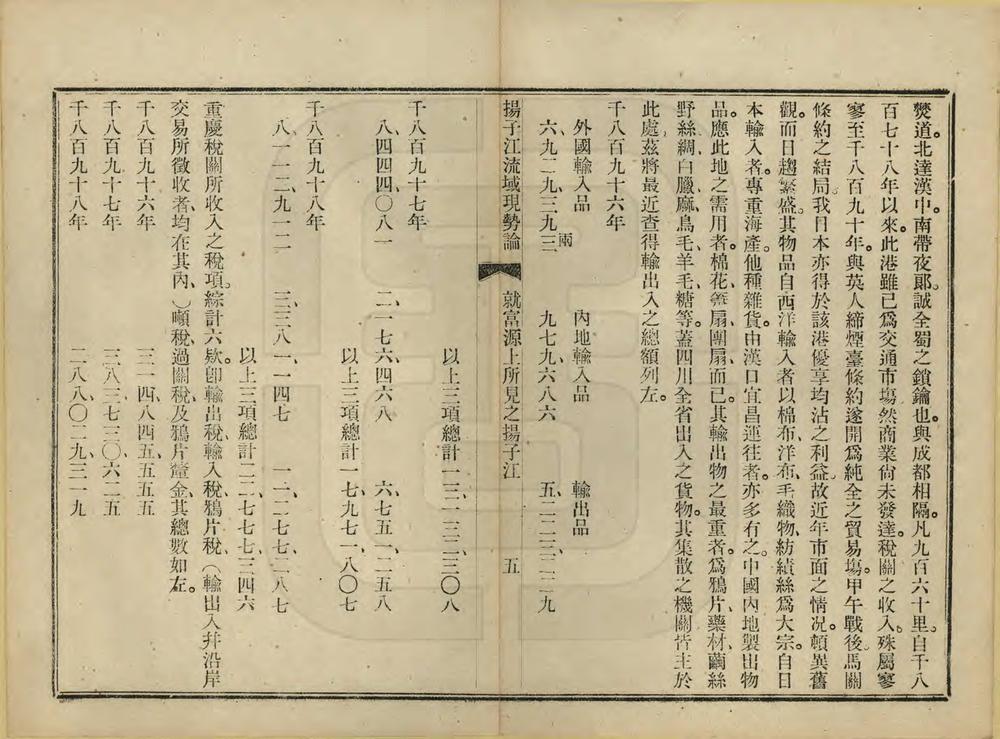 僰道。北達漢中。南帶夜郞。誠全蜀之鎖鑰也。與成都相隔。凡九百六十里。自千八
百七十八年以來。此港雖已爲交通市塲。然商業尙未發達。稅關之收入。殊屬寥
寥。至千八百九十年。與英人締煙臺條約。遂開爲純全之貿易塲。甲午戰後。馬關
條約之結局。我日本亦得於該港優享均沾之利益。故近年市面之情况。頓異舊
觀。而日趨繁盛。其物品自西洋輸入者。以棉布、洋布、毛織物、紡績絲爲大宗。自日
本輸入者。專重海產。他種雜貨。由漢口宜昌運往者。亦多有之。中國內地製出物
品。應此地之需用者。棉花、葵扇、團扇而已。其輸出物之最重者。爲鴉片、藥材、繭絲
野絲綢、白臘、麻、鳥毛、羊毛、糖等。蓋四川全省出入之貨物。其集散之機關。皆主於
此處。茲將最近查得輸出入之總額列左。
千八百九十六年
外國輸入品　內地輸入品　輸出品
六、九二九、三九三兩　九七九、六八六　五、二二三、二二九
揚子江流域現勢論　就富源上所見之揚子江　五
以上三項總計一三、一三二、三〇八
千八百九十七年
八、四四四、〇八一　二、一七六、四六八　六、七五一、二五八
以上三項總計一七、九七一、八〇七
千八百九十八年
八、一一二、九一二　三、三八一、一四七　一一、二七七、二八七
以上三項總計二二、七七一、三四六
重慶稅關所收入之稅項。綜計六欵。卽輸出稅、輸入稅、鴉片稅、（輸出入幷沿岸
交易所徵收者、均在其內、）噸稅、過關稅、及鴉片釐金、其總數如左。
千八百九十六年　三一四、八四五、五五五
千八百九十七年　三八三、七三〇、六二五
千八百九十八年　二八八、〇二九、三一九